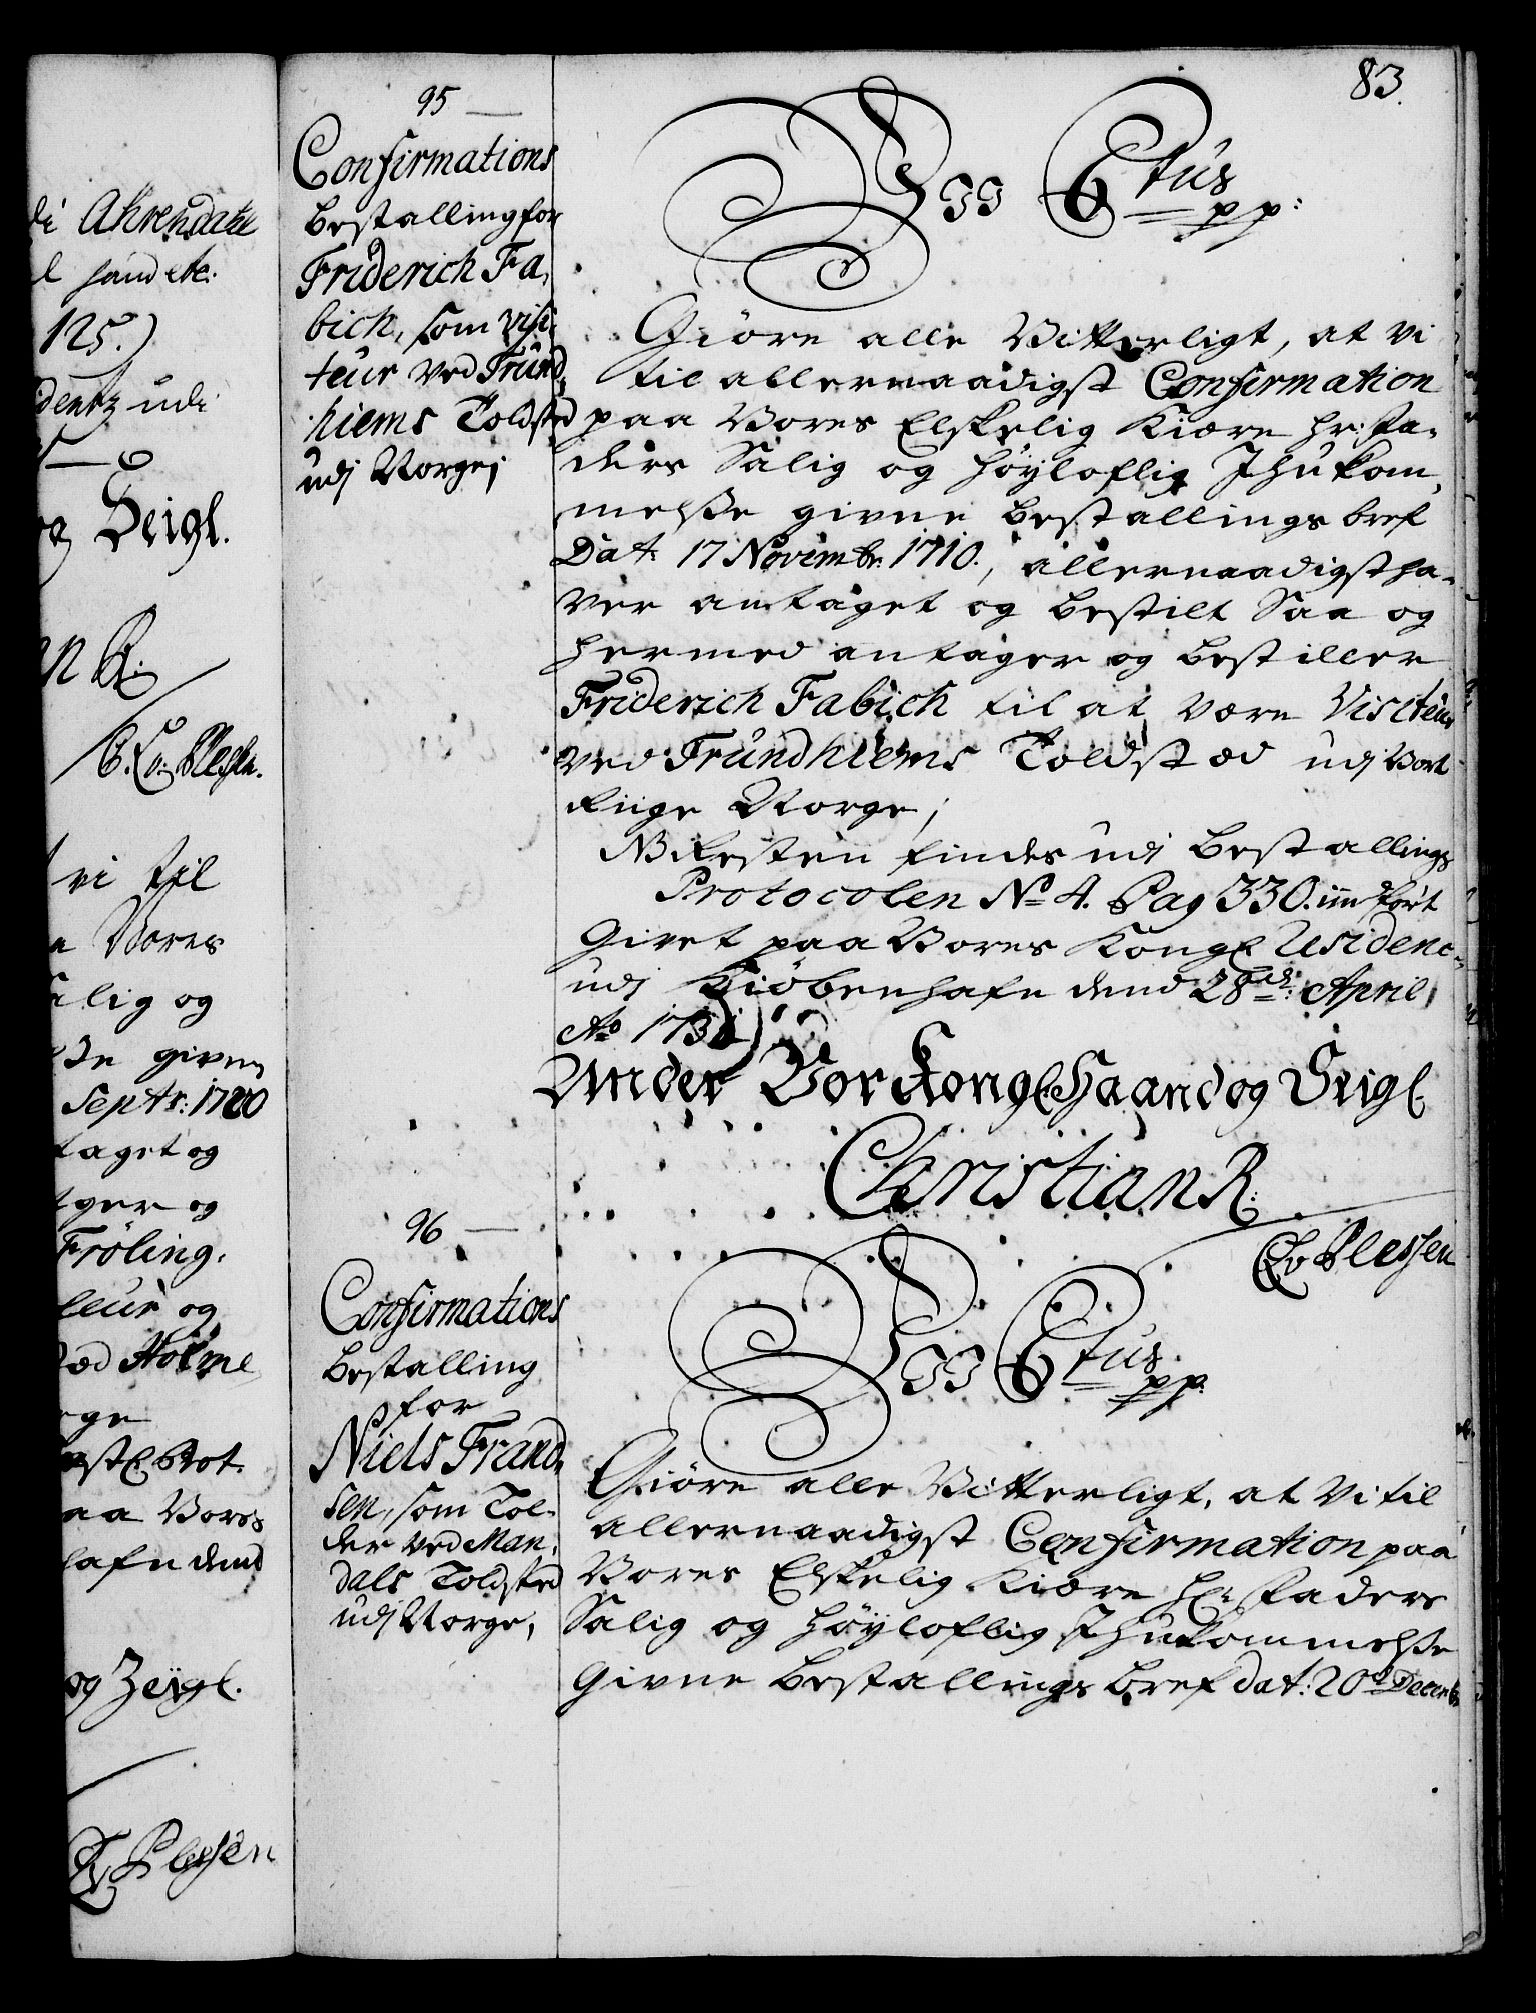 83.
95
Confirmations
Bestalling for
Friderich Fa,
bich, som Visi,
teur ved Trund,
hiems Toldsted
udj Norge;
Vj C 6 tus
pp:
Giöre alle Vitterligt, at vi
til allernaadigst Confirmation
paa Vores Elskelig Kiære Hr: Fa,
ders Salig og Höyloflig Ihukom,
melsse givne Bestallings bref
Dat: 17 Novembr: 1710., allernaadigst ha,
ver antaget og bestilt Saa og
hermed antager og bestiller
Friderich Fabich til at være Visiteur
ved Trundhiems Toldstæd udj Vort
Riige Norge;
NB Resten findes udj Bestallings
Protocolen No 4. Pag 330. iindfört
Givet paa Vores Kongl Residence
udj Kiöbenhafn dend 28de April
Ao 1731
Under Vor Kongl. Haand og Seigl.
Christian R.
C v Plessen
96
Confirmations
Bestalling
for
Niels Frand,
sen, som Tol,
der ved Man,
dals Toldsted
udj Norge,
Vj C 6 tus
pp:
Giöre alle Vitterligt, at Vi til
allernaadigst Confirmation paa
Vores Elskelig Kiære Hr: Faders
Salig og Höyloflig Ihukommelsse
Givne Bestallings bref dat: 20d Decemb
di Ahrendahl
125.)
identz udi
og Seigl.
en R.
vi til
Vores
Salig og
sse givne
Septr: 1700
taget og
ger og
Fröling,
leur og
sted Holme
rge
Bestl. Prot.
paa Vores
hafn dend
og Zeigl.
C v Plessen